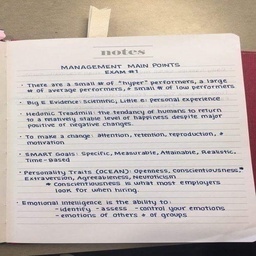 notes
MANAGEMENT MAIN POINTS
EXAM #1
• There are a small # of "hyper" performers, a large
# of average performers, + small # of low performers
• Big E Evidence: Scientific, Little e: personal experience
• Hedonic Treadmill: the tendency of humans to return
to a relatively stable level of happiness despite major
positive or negative changes.
• To make a change: attention, retention, reproduction, +
motivation
• SMART Goals: Specific, Measurable, Attainable, Realistic,
Time-Based
• Personality Traits (OCEAN): Openness, Conscientiousness,*
Extraversion, Agreeableness, Neuroticism
* Conscientiousness is what most employers
look for when hiring.
• Emotional Intelligence is the ability to:
-identify -assess -control your emotions
-emotions of others + of groups